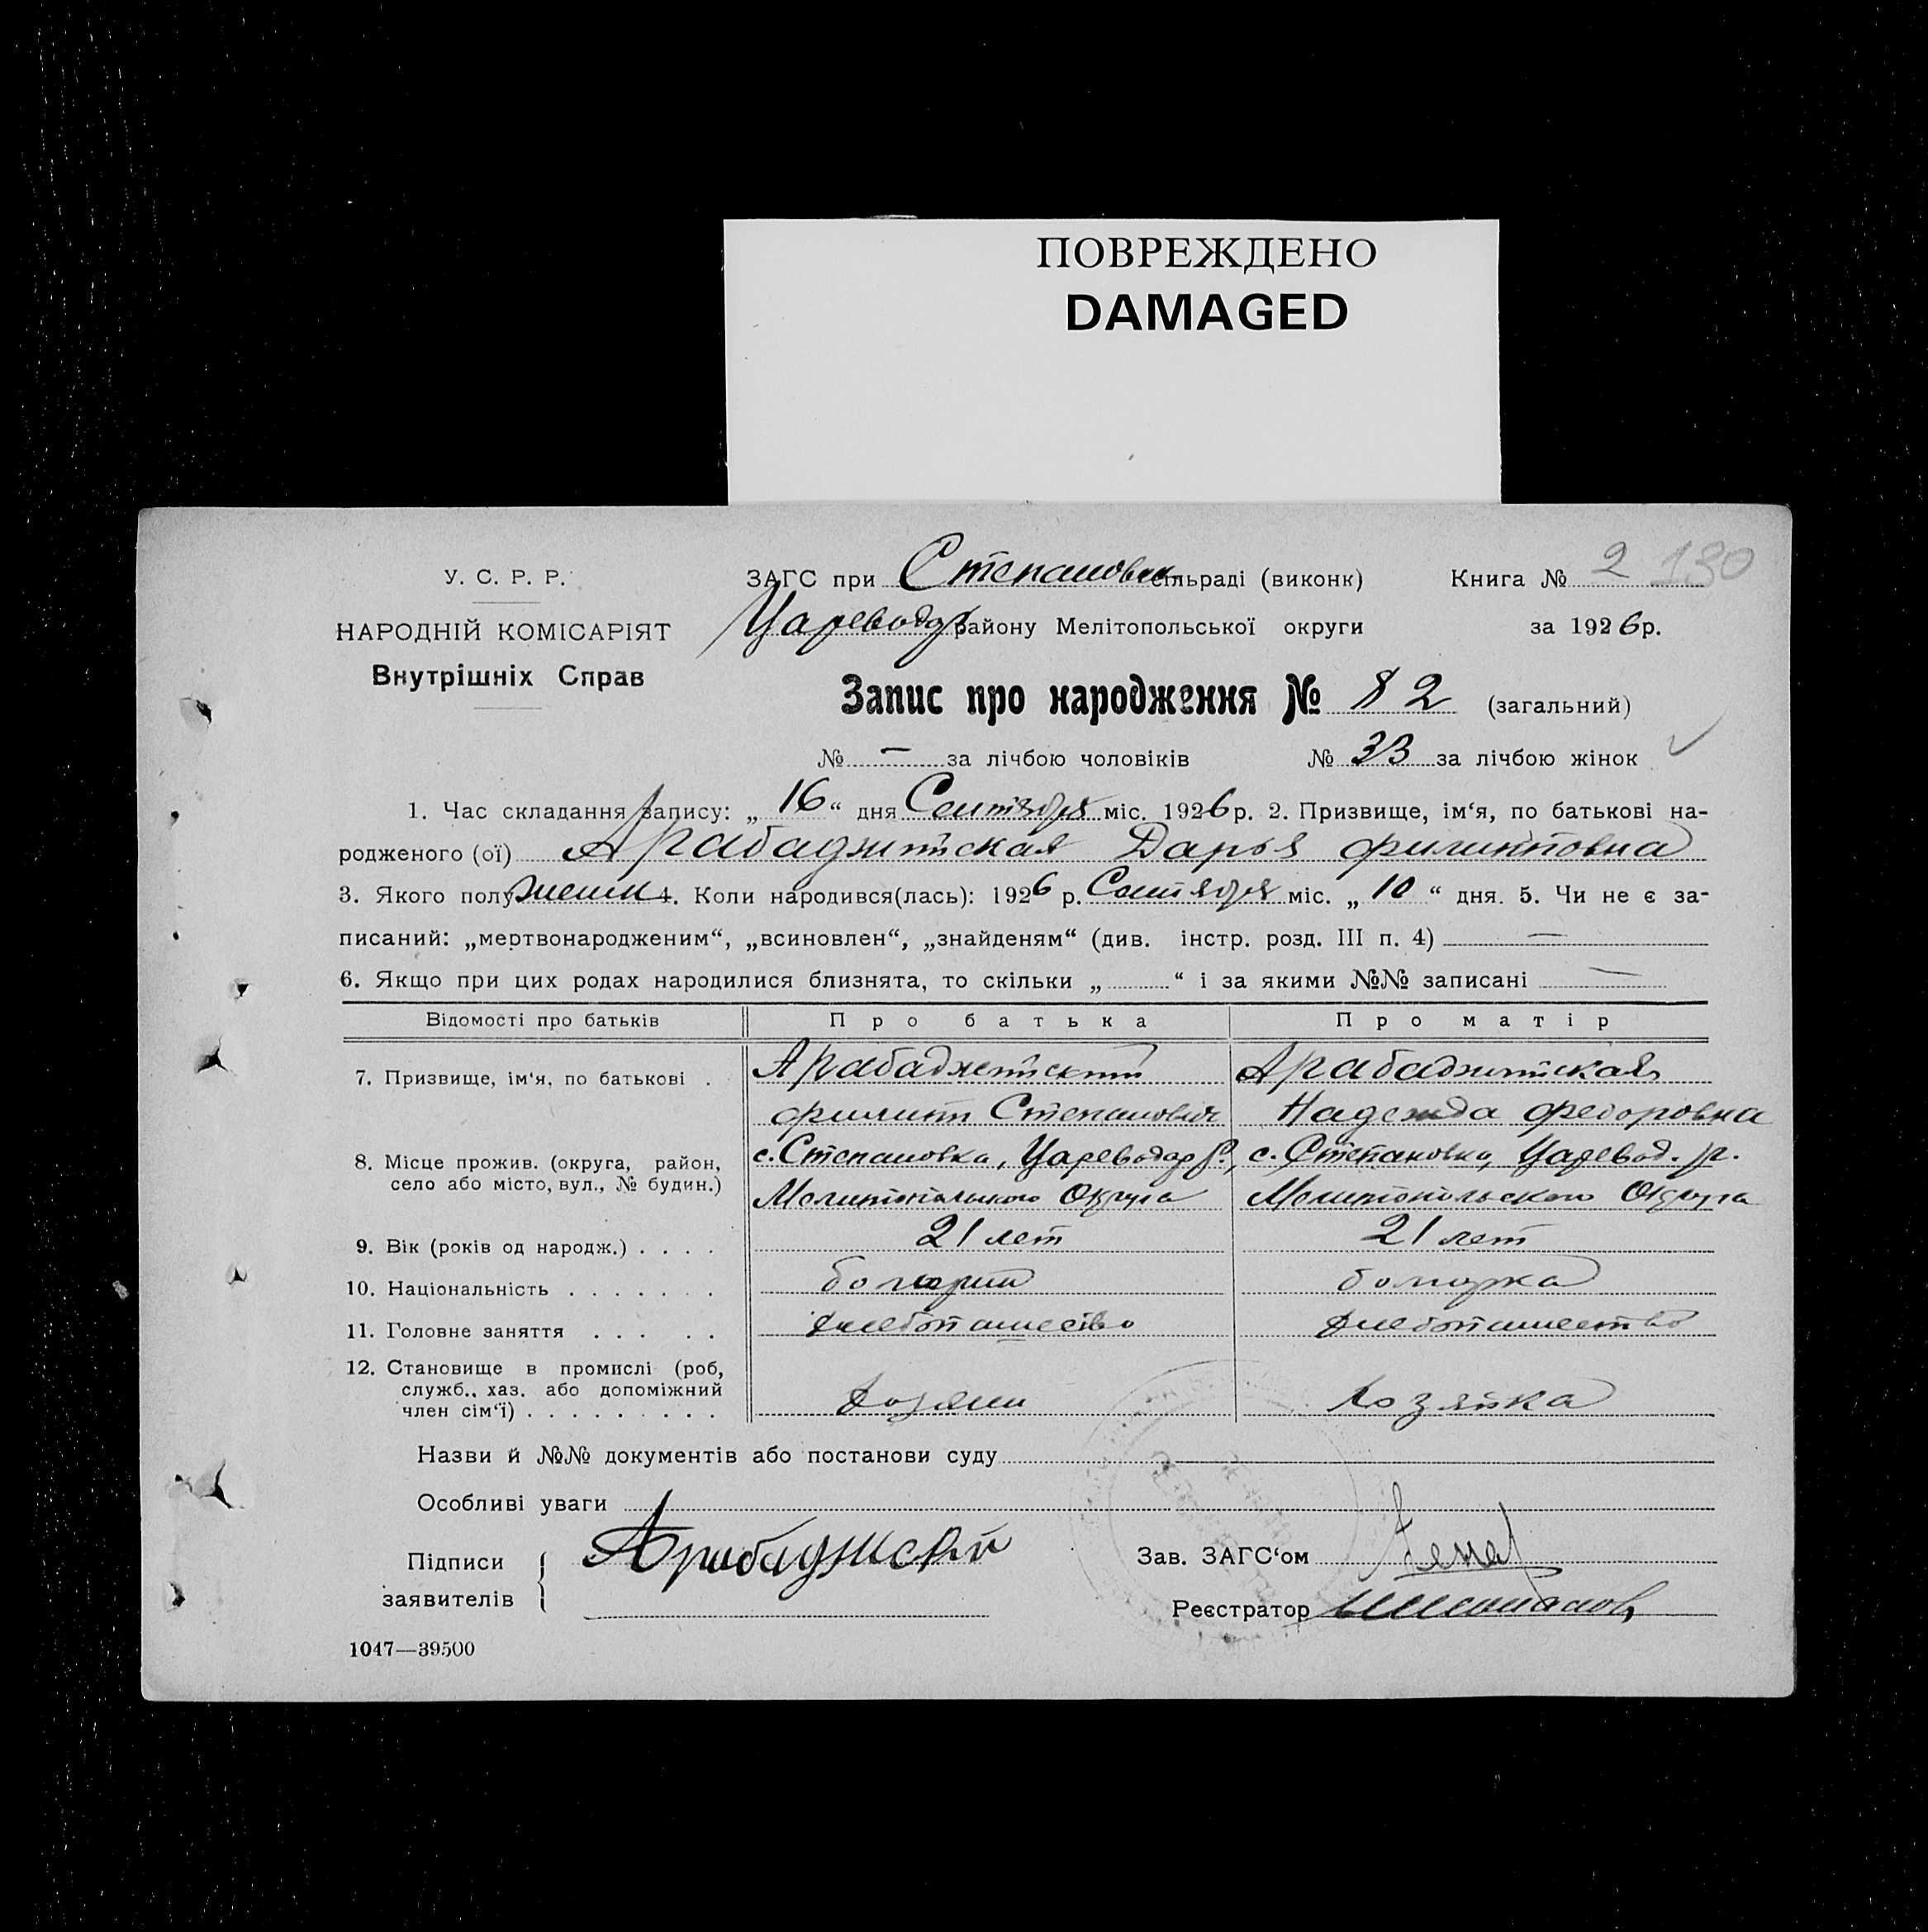 ПОВРЕЖДЕНО
DAMAGED
У. С. Р. Р.
НАРОДНІЙ КОМІСАРІЯТ
Внутрішніх Справ
ЗАГС при Степановск сільраді (виконк)
Книга № 2 130
Цареводар району Мелітопольської округи
за 1926 р.
Запис про народження № 82 (загальний)
№ — за лічбою чоловіків № 33 за лічбою жінок
1. Час складання запису: „16“ дня Сентября міс. 1926 р. 2. Призвище, ім‘я, по батькові на-
родженого (ої) Арабаджитская Дарья Филипповна
3. Якого полу женск 4. Коли народився(лась): 1926 р. Сентября міс. „10“ дня. 5. Чи не є за-
писаний: „мертвонародженим“, „всиновлен“, „знайденям“ (див. інстр. розд. III п. 4) —
6. Якщо при цих родах народилися близнята, то скільки „ “ і за якими №№ записані —
Відомості про батьків Про батька Про матір
7. Призвище, ім‘я, по батькові . Арабаджитский Арабаджитская
Филипп Степанович Надежда Федоровна
8. Місце прожив. (округа, район, с. Степановка, Цареводар р., с. Степановка, Царевод. р.
село або місто, вул., № будин.) Мелитопольского Округа Мелитопольского Округа
9. Вік (років од народж.) . . . . 21 лет 21 лет
10. Національність . . . . . . . болгарин болгарка
11. Головне заняття . . . . . хлебопашество хлебопашество
12. Становище в промислі (роб,
служб., хаз. або допоміжний
член сім‘ї) . . . . . . . . . хозяин хозяйка
Назви й №№ документів або постанови суду
Особливі уваги
Підписи
заявителів
Зав. ЗАГС‘ом
Реєстратор
1047—39500